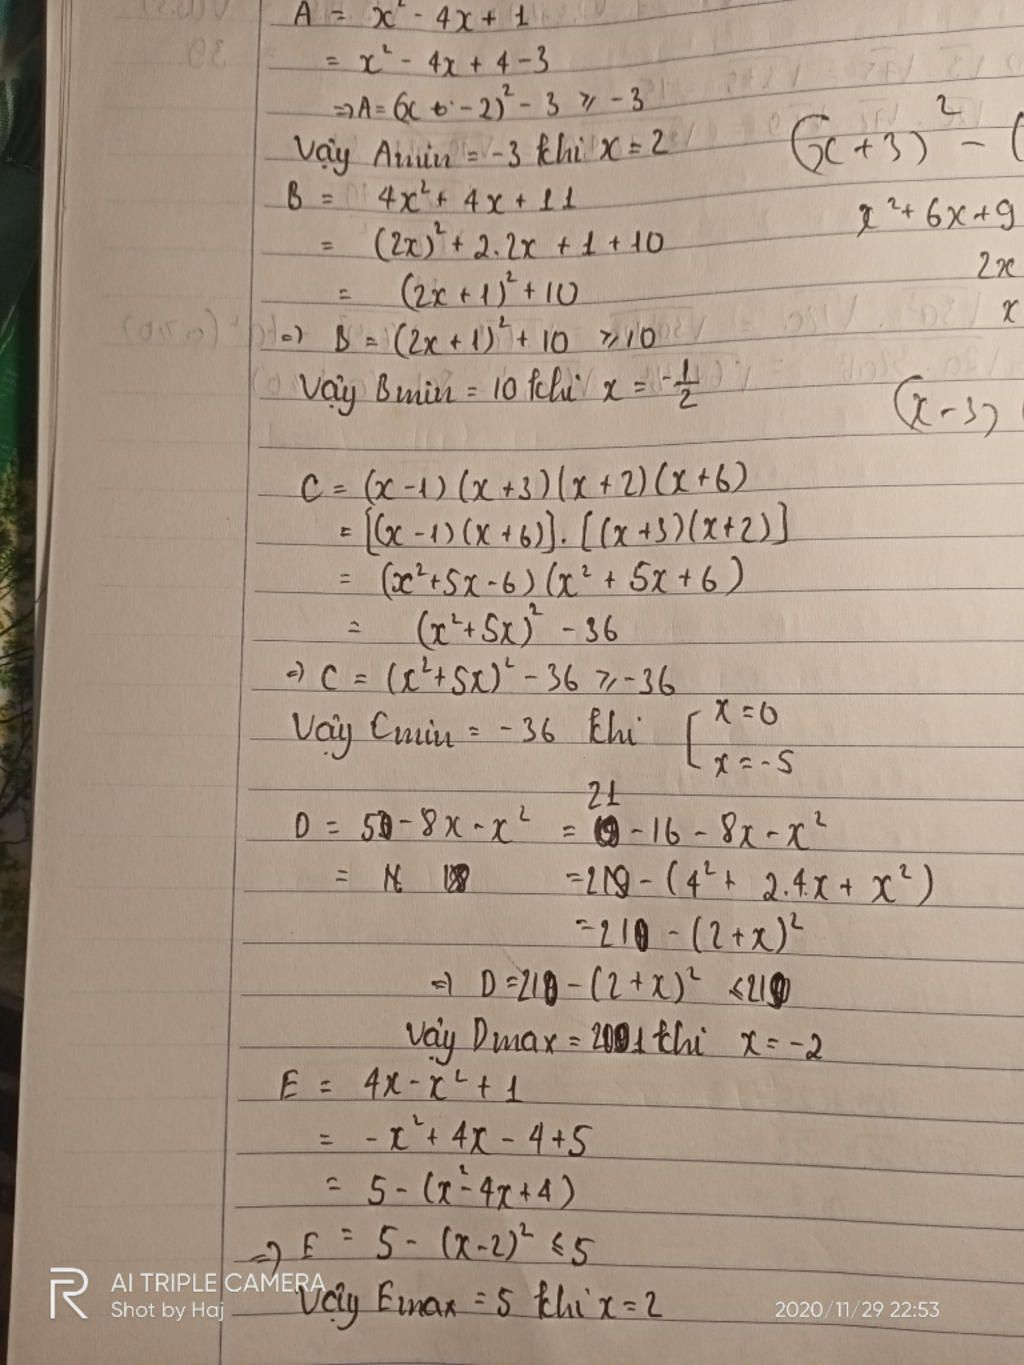 A = x² - 4x + 1
= x² - 4x + 4 - 3
⇒ A = (x - 2)² - 3 ≥ -3
Vậy Amin = -3 khi x = 2
(x + 3)² - (
B = 4x² + 4x + 11
x² + 6x + 9
= (2x)² + 2.2x + 1 + 10
2x
= (2x + 1)² + 10
x
⇒ B = (2x + 1)² + 10 ≥ 10
Vậy Bmin = 10 khi x = -1/2
(x - 3)
C = (x - 1)(x + 3)(x + 2)(x + 6)
= [(x - 1)(x + 6)].[(x + 3)(x + 2)]
= (x² + 5x - 6)(x² + 5x + 6)
= (x² + 5x)² - 36
⇒ C = (x² + 5x)² - 36 ≥ -36
Vậy Cmin = -36 khi [ x = 0
x = -5
D = 5 - 8x - x² = 21 - 16 - 8x - x²
= = 21 - (4² + 2.4.x + x²)
= 21 - (2 + x)²
⇒ D = 21 - (2 + x)² ≤ 21
Vậy Dmax = 21 khi x = -2
E = 4x - x² + 1
= -x² + 4x - 4 + 5
= 5 - (x² - 4x + 4)
⇒ E = 5 - (x - 2)² ≤ 5
Vậy Emax = 5 khi x = 2
AI TRIPLE CAMERA
Shot by Haj
2020/11/29 22:53